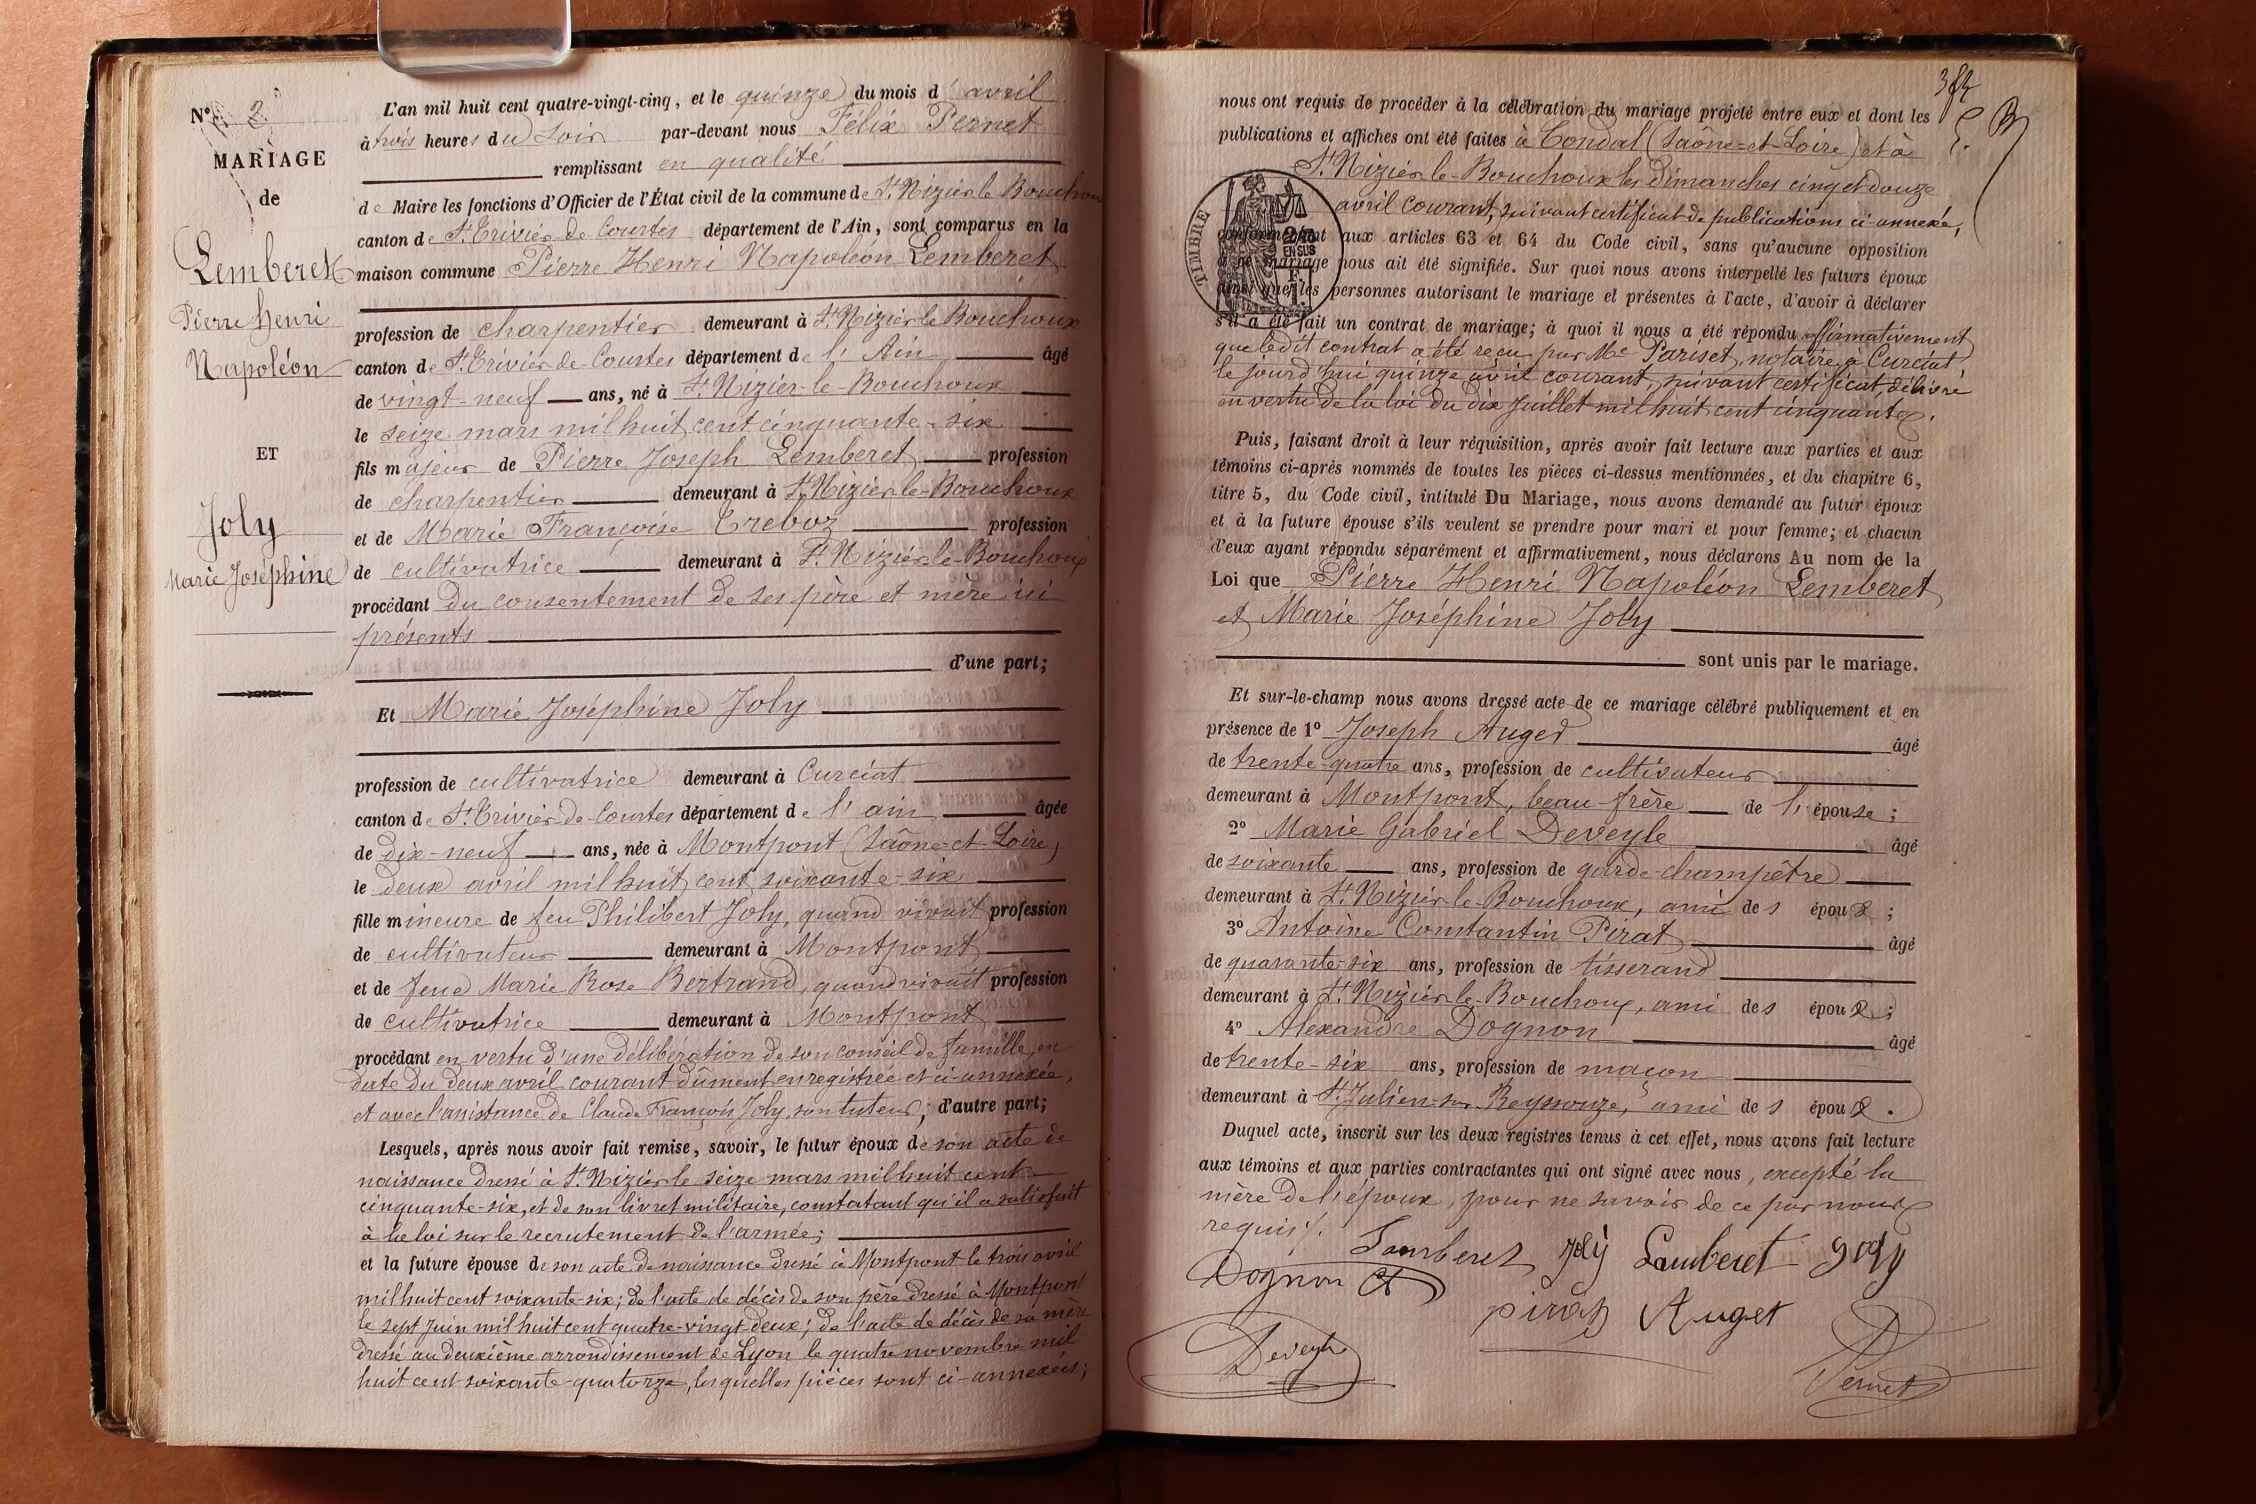 N° 2
MARIAGE
de
Lemberet
Pierre Henri
Napoléon
ET
Joly
Marie Joséphine
L'an mil huit cent quatre-vingt-cinq, et le quinze du mois d'avril
à trois heures du soir par-devant nous Félix Pernet
remplissant en qualité
de Maire les fonctions d'Officier de l'État civil de la commune de St. Nizier le Bouchoux
canton de St. Trivier de Courtes département de l'Ain, sont comparus en la
maison commune Pierre Henri Napoléon Lemberet
profession de charpentier demeurant à St. Nizier le Bouchoux
canton de St. Trivier-de-Courtes département de l'Ain âgé
de vingt-neuf ans, né à St. Nizier-le-Bouchoux
le seize mars mil huit cent cinquante-six
fils majeur de Pierre Joseph Lemberet profession
de charpentier demeurant à St. Nizier-le-Bouchoux
et de Marie Françoise Treboz profession
de cultivatrice demeurant à St. Nizier-le-Bouchoux
procédant du consentement de ses père et mère ici
présents
d'une part;
Et Marie Joséphine Joly
profession de cultivatrice demeurant à Curciat
canton de St. Trivier-de-Courtes département de l'ain âgée
de dix-neuf ans, née à Montpont (Saône-et-Loire)
le deux avril mil huit cent soixante-six
fille mineure de feu Philibert Joly, quand vivait profession
de cultivateur demeurant à Montpont
et de feue Marie Rose Bertrand, quand vivait profession
de cultivatrice demeurant à Montpont
procédant en vertu d'une délibération de son conseil de famille, en
date du deux avril courant dûment enregistrée et ci-annexée,
et avec l'assistance de Claude François Joly, son tuteur; d'autre part;
Lesquels, après nous avoir fait remise, savoir, le futur époux de son acte de
naissance dressé à St. Nizier le seize mars mil huit cent
cinquante-six, et de son livret militaire, constatant qu'il a satisfait
à la loi sur le recrutement de l'armée;
et la future épouse de son acte de naissance dressé à Montpont le trois avril
mil huit cent soixante-six; de l'acte de décès de son père dressé à Montpont
le sept Juin mil huit cent quatre-vingt-deux; de l'acte de décès de sa mère
dressé au deuxième arrondissement de Lyon le quatre novembre mil
huit cent soixante-quatorze, lesquelles pièces sont ci-annexées;
nous ont requis de procéder à la célébration du mariage projeté entre eux et dont les
publications et affiches ont été faites à Condal (Saône-et-Loire) et à
St. Nizier-le-Bouchoux les dimanches cinq et douze
avril courant, suivant certificat de publications ci-annexée,
TIMBRE
conformément aux articles 63 et 64 du Code civil, sans qu'aucune opposition
à ce mariage nous ait été signifiée. Sur quoi nous avons interpellé les futurs époux
ainsi que les personnes autorisant le mariage et présentes à l'acte, d'avoir à déclarer
EN SUS
s'il a été fait un contrat de mariage; à quoi il nous a été répondu affirmativement
que ledit contrat a été reçu par Me Pariset, notaire à Curciat
le jourd'hui quinze avril courant, suivant certificat, délivré
en vertu de la loi du dix Juillet mil huit cent cinquante.
Puis, faisant droit à leur réquisition, après avoir fait lecture aux parties et aux
témoins ci-après nommés de toutes les pièces ci-dessus mentionnées, et du chapitre 6,
titre 5, du Code civil, intitulé Du Mariage, nous avons demandé au futur époux
et à la future épouse s'ils veulent se prendre pour mari et pour femme; et chacun
d'eux ayant répondu séparément et affirmativement, nous déclarons Au nom de la
Loi que Pierre Henri Napoléon Lemberet
et Marie Joséphine Joly
sont unis par le mariage.
Et sur-le-champ nous avons dressé acte de ce mariage célébré publiquement et en
présence de 1° Joseph Auger âgé
de trente-quatre ans, profession de cultivateur
demeurant à Montpont, beau-frère de l'épouse;
2° Marie Gabriel Deveyle âgé
de soixante ans, profession de garde-champêtre
demeurant à St. Nizier-le-Bouchoux, ami des époux;
3° Antoine Constantin Pirat âgé
de quarante-six ans, profession de tisserand
demeurant à St. Nizier-le-Bouchoux, ami des époux;
4° Alexandre Dognon âgé
de trente-six ans, profession de maçon
demeurant à St. Julien-sur-Reyssouze, ami des époux.
Duquel acte, inscrit sur les deux registres tenus à cet effet, nous avons fait lecture
aux témoins et aux parties contractantes qui ont signé avec nous, excepté la
mère de l'époux, pour ne savoir de ce par nous
requis.
Lamberet Joly Lamberet Joly
Dognon
pirat Auget
Deveyle
Pernet